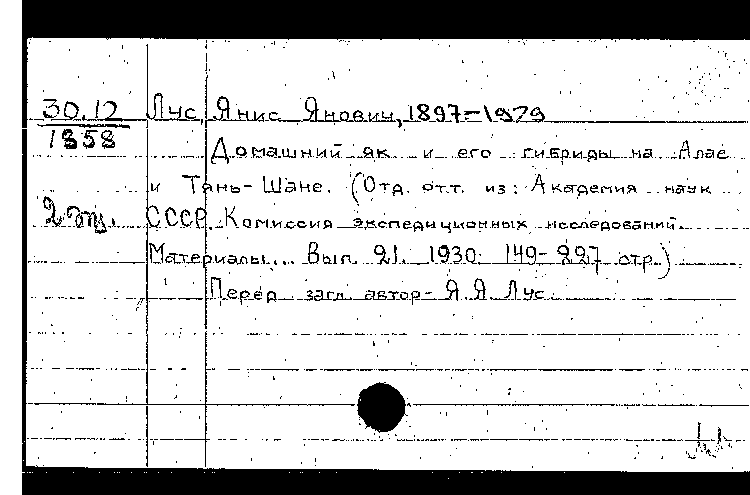 30.12 Лус, Янис Янович, 1897-1979
1858
Домашний як и его гибриды на Алае
и Тянь-Шане. (Отд. отт. из: Академия наук
2 эк. СССР. Комиссия экспедиционных исследований.
Материалы... Вып. 21. 1930. 149-227 стр.)
Перед загл. автор- Я.Я. Лус.